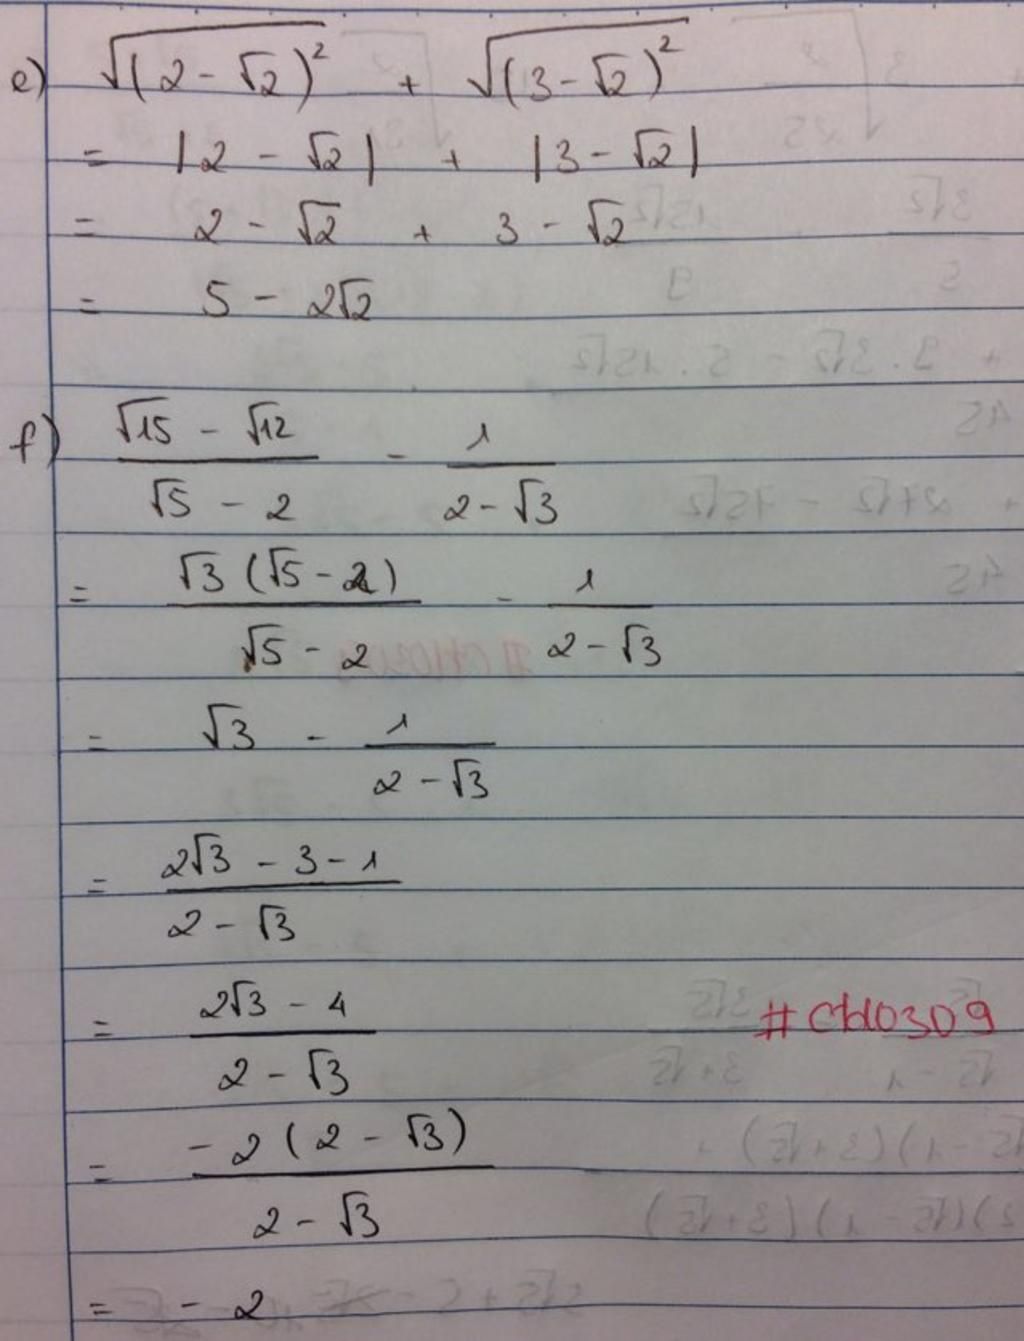 e) √(2 - √2)² + √(3 - √2)²
= |2 - √2| + |3 - √2|
= 2 - √2 + 3 - √2
= 5 - 2√2
f) (√15 - √12)/(√5 - 2) - 1/(2 - √3)
= √3(√5 - 2)/(√5 - 2) - 1/(2 - √3)
= √3 - 1/(2 - √3)
= (2√3 - 3 - 1)/(2 - √3)
= (2√3 - 4)/(2 - √3)
= -2(2 - √3)/(2 - √3)
= - 2